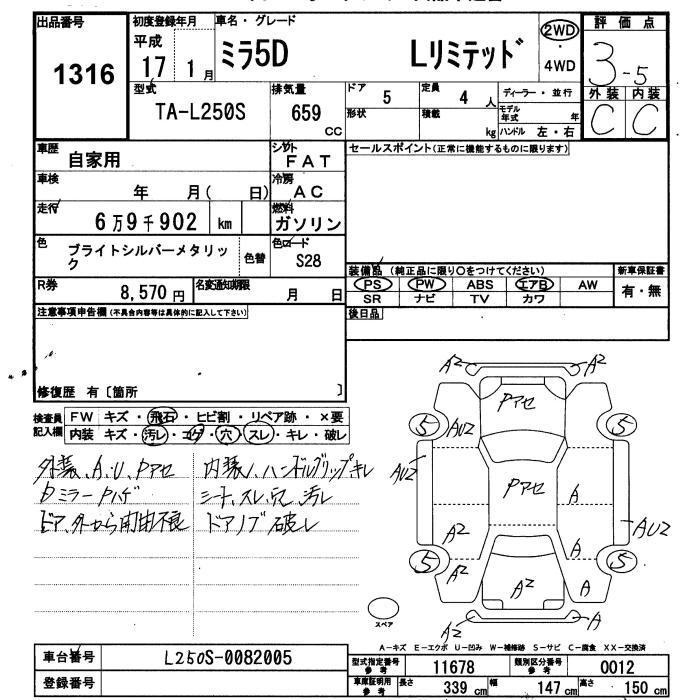 出品番号
1316
初度登録年月
平成
17 1月
車名・グレード
ミラ5D Lリミテッド
2WD
・
4WD
評価点
3-5
外装 内装
C C
型式
TA-L250S
排気量
659
CC
ドア
5
定員
4 人
ディーラー・並行
形状
積載
kg
モデル年式 年
ハンドル 左・右
車歴
自家用
シフト
FAT
セールスポイント(正常に機能するものに限ります)
車検
年 月( 日)
冷房
AC
走行
6万9千902 km
燃料
ガソリン
色
ブライトシルバーメタリック
色替
色コード
S28
R券
8,570円
名変通知期限
月 日
装備品 (純正品に限り○をつけてください)
PS PW ABS エアB AW
SR ナビ TV カワ
新車保証書
有・無
後日品
注意事項申告欄(不具合内容等は具体的に記入して下さい)
修復歴 有〔箇所 〕
検査員記入欄
FW キズ・飛石・ヒビ割・リペア跡・×要
内装 キズ・汚レ・コゲ・穴・スレ・キレ・破レ
外装、A.U.Pアセ
内装、ハンドルグリップキレ
Dミラー Pハゲ
シート、スレ、穴、汚レ
ドア、外から開閉不良
ドアノブ破レ
A2 A2
Pアセ
5 5
AU2
AU2
Pアセ
A
A2
A
AU2
5 5
A2
A2
A
A2 A
スペア
A-キズ E-エクボ U-凹み W-補修跡 S-サビ C-腐食 XX-交換済
車台番号
L250S-0082005
登録番号
型式指定番号
参考
11678
類別区分番号
参考
0012
車庫証明用
参考
長さ 339 cm
幅 147 cm
高さ 150 cm